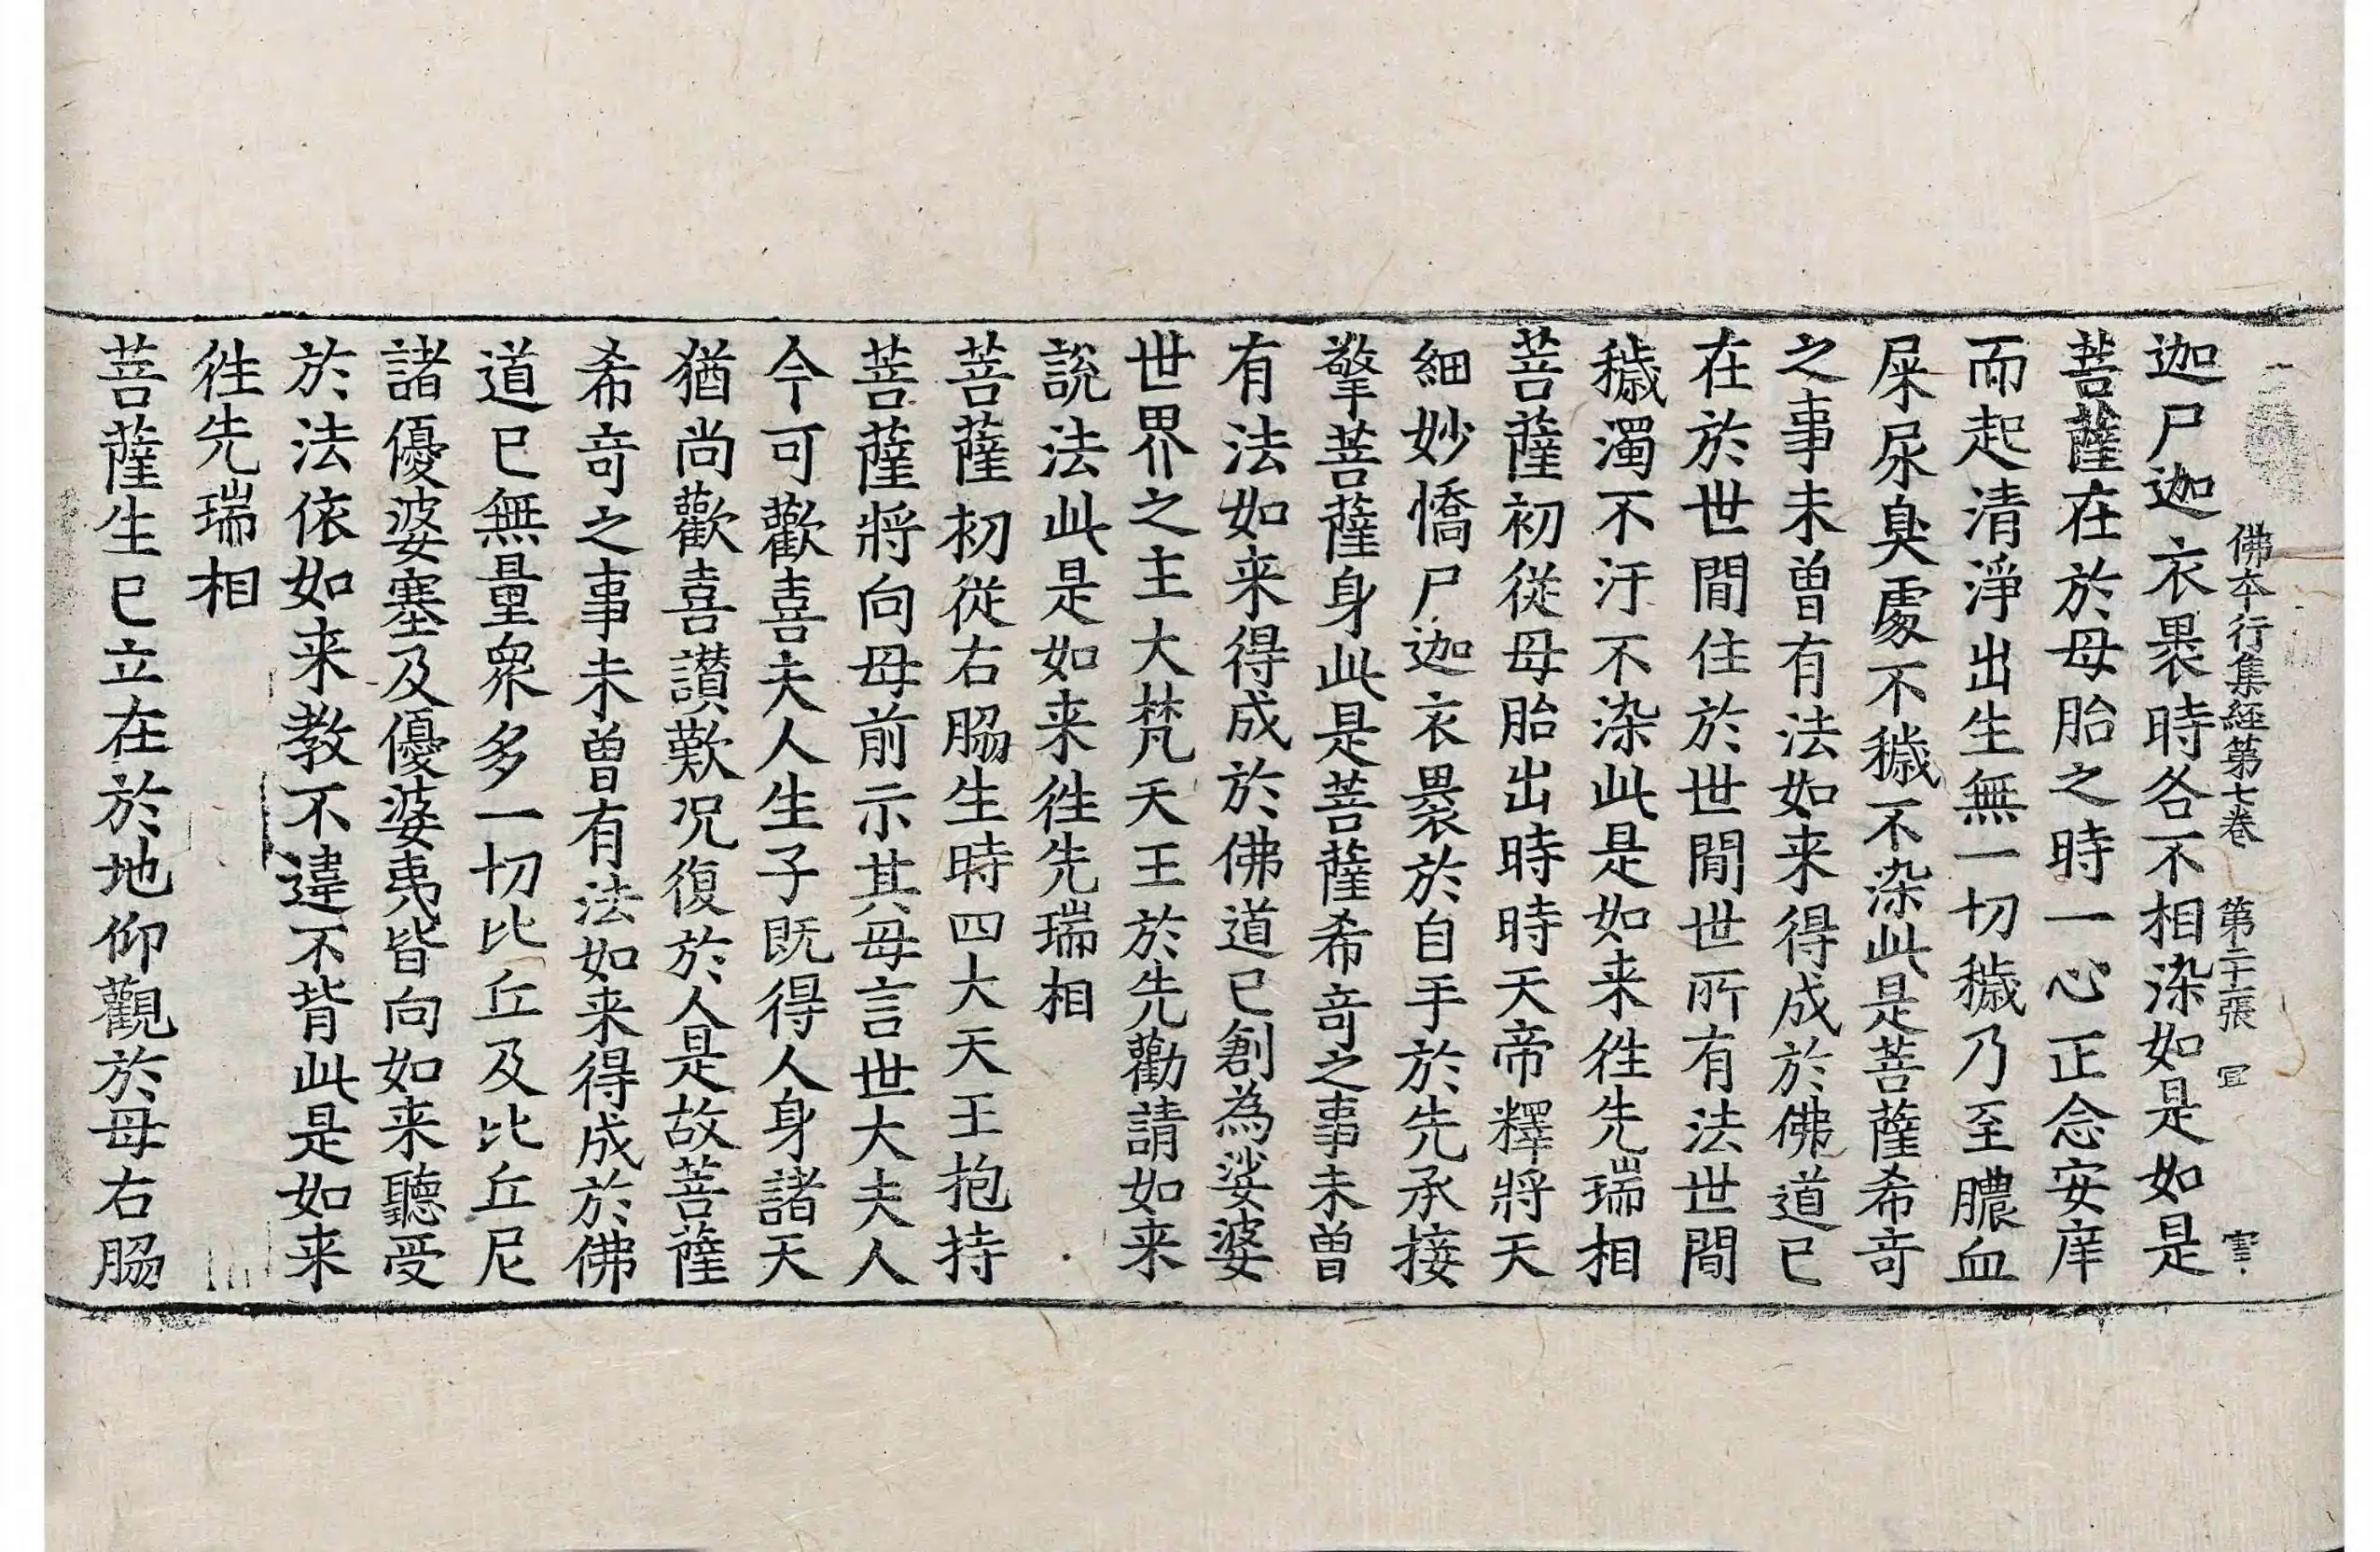 佛本行集經第七卷 第二十張 宜 害
迦尸迦衣褁時各不相染如是如是
菩薩在於母胎之時一心正念安庠
而起清淨出生無一切穢乃至膿血
屎尿臭處不穢不染此是菩薩希奇
之事未曾有法如来得成於佛道已
在於世閒住於世閒世所有法世閒
穢濁不汙不染此是如来徃先瑞相
菩薩初從母胎出時時天帝釋將天
細妙憍尸迦衣褁於自手於先承接
擎菩薩身此是菩薩希奇之事未曾
有法如来得成於佛道已創為娑婆
世界之主大梵天王於先勸請如来
說法此是如来徃先瑞相
菩薩初從右脇生時四大天王抱持
菩薩將向母前示其母言世大夫人
今可歡喜夫人生子既得人身諸天
猶尚歡喜讃歎况復於人是故菩薩
希奇之事未曾有法如来得成於佛
道已無量衆多一切比丘及比丘尼
諸優婆塞及優婆夷皆向如来聽受
於法依如来教不違不背此是如来
徃先瑞相
菩薩生已立在於地仰觀於母右脇